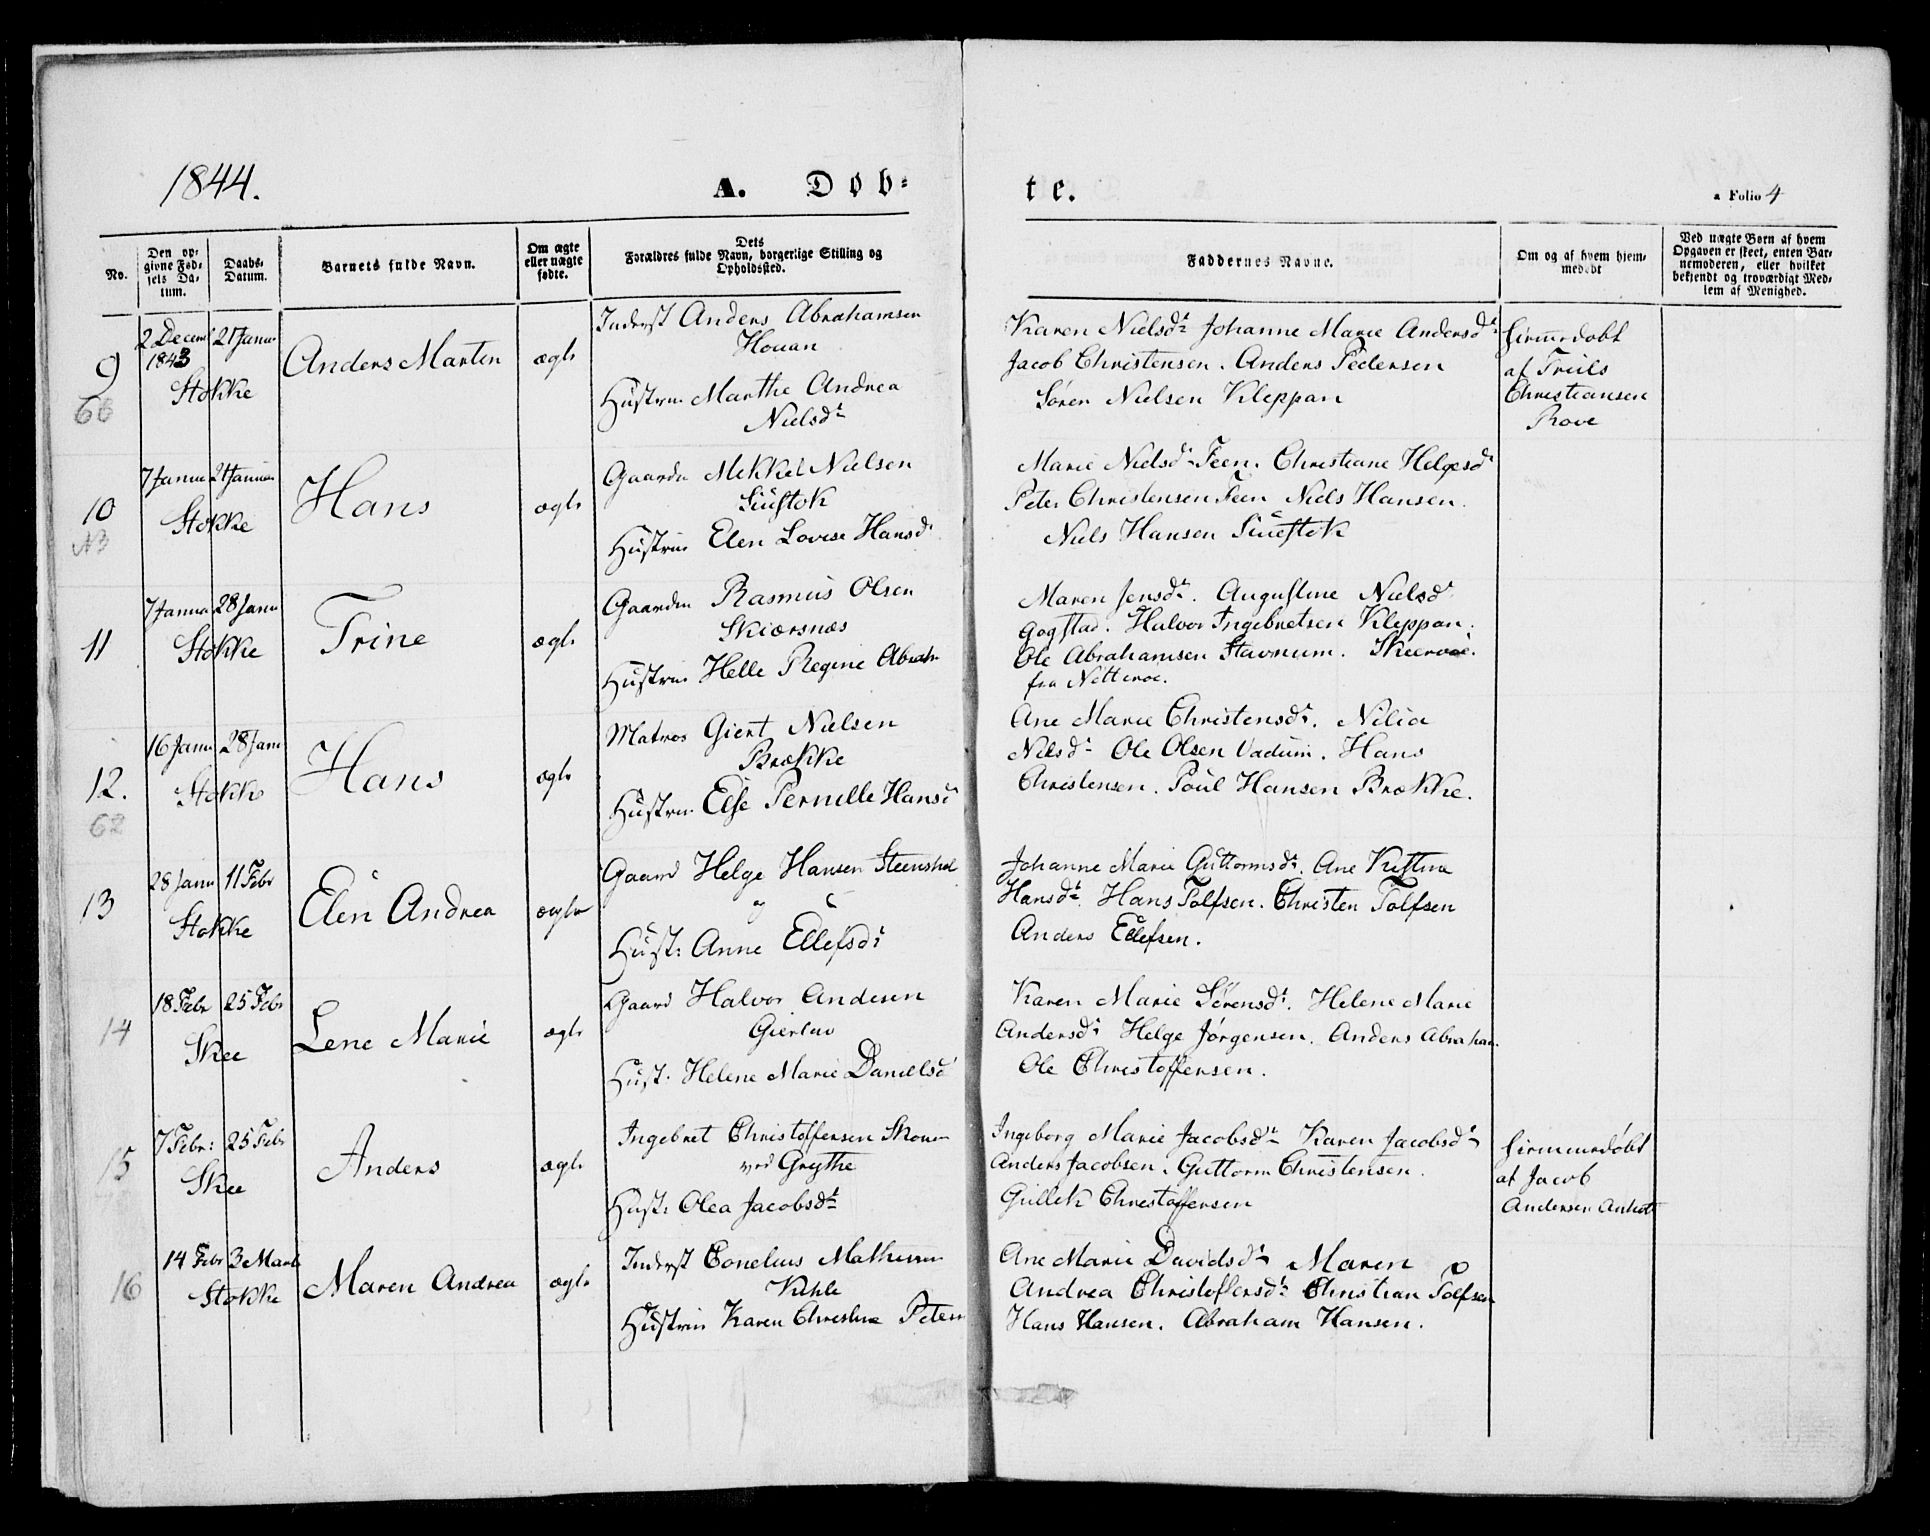 1844.
A. Døb-
te.
a Folio 4
No.
Den op-
givne Fød-
sels Da-
tum.
Daabs-
Datum.
Barnets fulde Navn.
Om ægte
eller uægte
fødte.
Dets
Forældres fulde Navn, borgerlige Stilling og
Opholdssted.
Faddernes Navne.
Om og af hvem hjem-
medøbt
Ved uægte Børn af hvem
Opgaven er skeet, enten Bar-
nemoderen, eller hvilket
bekjendt og troværdigt Med-
lem af Menighed.
9
66
2 Decem
1843
21 Janu
Stokke
Anders Martin
ægte
Inderst Anders Abrahamsen
Houan
Hustru Marthe Andrea
Nielsdr
Karen Nielsdr Johanne Marie Andersdr
Jacob Christensen. Anders Pedersen
Søren Nielsen Kleppan
hjemmedøbt
af Truls
Christiansen
Rove
10
NB
7 Janua
21 Januar
Stokke
Hans
ægte
Gaardm Mikkel Nielsen
Hustru Elen Lovise Hansdr
Marie Nielsdr Feen. Christiane Helgesdr
Peter Christensen Feen Niels Hansen.
Niels Hansen
11
7 Janua
28 Janu
Stokke
Trine
ægte
Gaardm Rasmus Olsen
Skiærsnæs
Hustru Helle Regine Abrah
Maren Jensdr. Augustine Nielsd
Gogstad. Halvor Ingebretsen Kleppan.
Ole Abrahamsen Stavnum.
fra Nøtterøe.
12.
62
16 Janu
28 Janu
Stokke
Hans
ægte
Matros Giert Nielsen
Brække
Hustru Else Pernille Hansd
Ane Marie Christensdr. Nilia
Nilsdr Ole Olsen Vadum. Hans
Christensen. Poul Hansen Brække.
13
28 Janu
11 Febr
Stokke
Elen Andrea
ægte
Gaard Helge Hansen Steenshol
og
Hust: Anne Ellefsdr
Johanne Marie Guttormsdr. Ane Kistina
Hansdr. Hans Tolfsen. Christen Tolfsen
Anders Ellefsen.
14
18 Febr
25 Febr
Skee
Lene Marie
ægte
Gaard Halvor Andersen
Gierløv
Hust: Helene Marie Danielsd
Karen Marie Sørensdr. Helene Marie
Andersdr Helge Jørgensen. Anders Abraham.
Ole Christoffersen.
15
7 Febr:
25 Febr
Skee
Anders
ægte
Ingebret Christoffersen
ved Grythe
Hust: Olea Jacobsdr
Ingeborg Marie Jacobsdr Karen Jacobsdr
Anders Jacobsen. Guttorm Christensen.
Gullek Christoffersen
hjemmedøbt
af Jacob
Andersen
16
14 Febr
3 Marts
Stokke
Maren Andrea
ægte
Inderst Conelius Mathisen
Kihle
Hustru Karen Christine Peters
Ane Marie Davidsdr Maren
Andrea Christoffersdr Christian Tolfsen
Hans Hansen. Abraham Hansen.